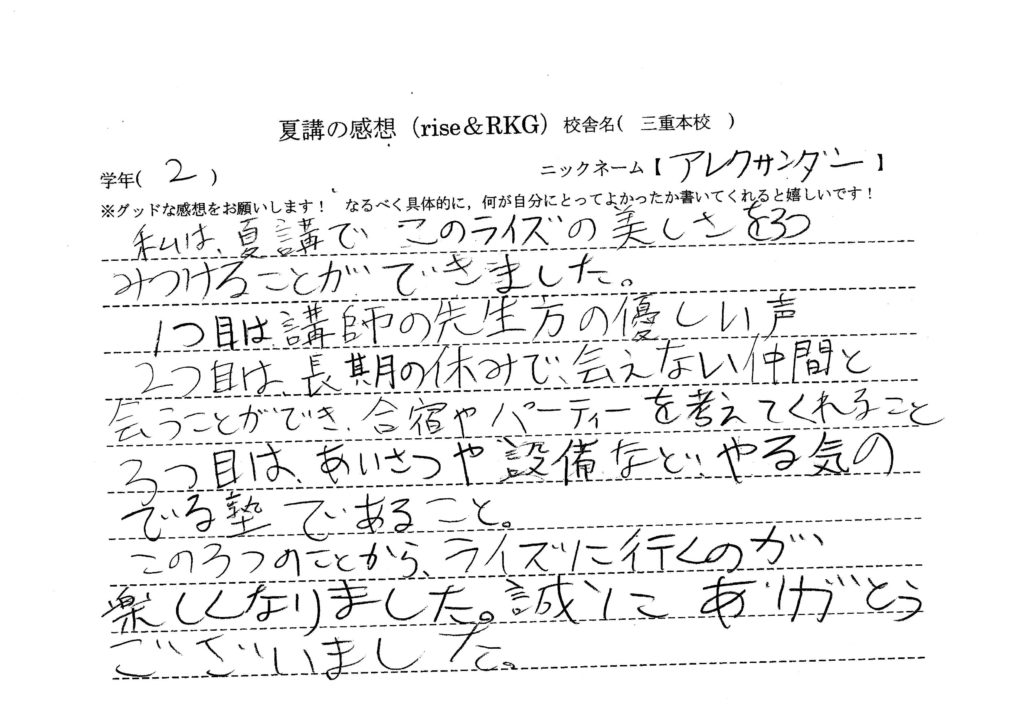 夏講の感想（rise＆RKG）校舎名(　三重本校　)
学年(　2　)　ニックネーム【 アレクサンダー 】
※グッドな感想をお願いします！　なるべく具体的に，何が自分にとってよかったか書いてくれると嬉しいです！
私は、夏講で このライズの美しさを3つ
みつけることができました。
1つ目は講師の先生方の優しい声
2つ目は、長期の休みで、会えない仲間と
会うことができ、合宿やパーティーを考えてくれること
3つ目は、あいさつや設備など、やる気の
でる塾であること。
この3つのことから、ライズに行くのが
楽しくなりました。誠に ありがとう
ございました。